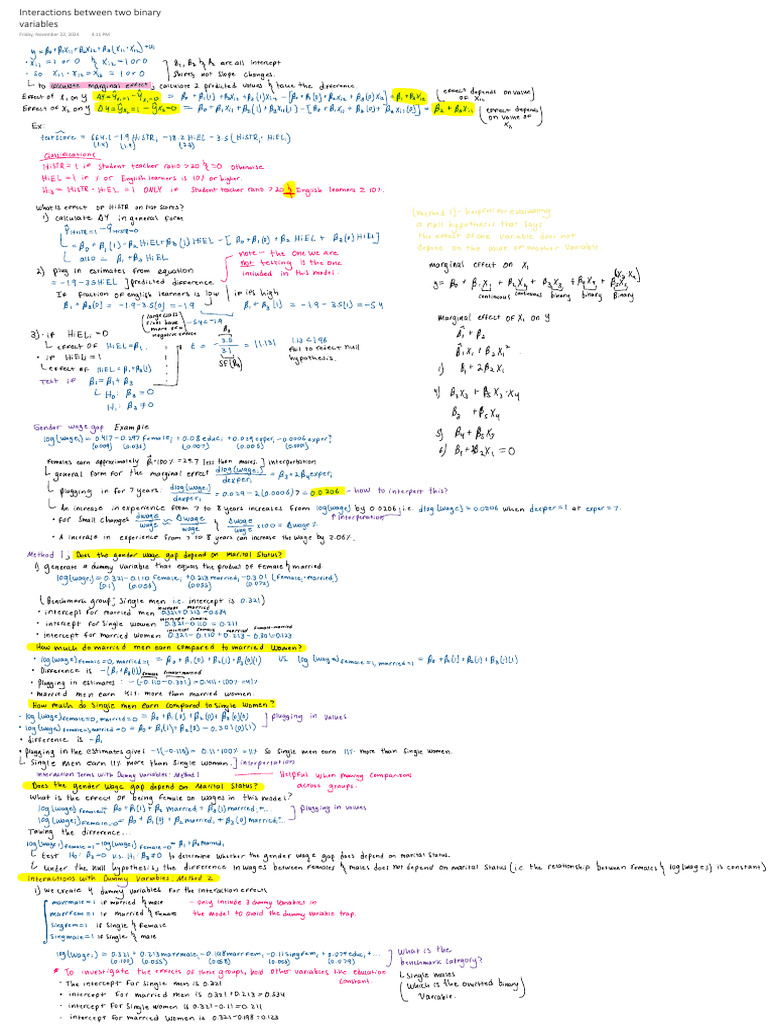 Interactions between two binary
variables
Friday, November 22, 2024 4:11 PM
y = β₀+β₁X₁₁+β₂X₁₂+β₃(X₁₁·X₁₂)+u₁
• X₁₁ = 1 or 0 & X₁₂ = 1 or 0
• so X₁₁·X₁₂=X₁₃ = 1 or 0
} β₁, β₂ & β₃ are all intercept
shifts, not slope changes.
↳ to calculate marginal effect; calculate 2 predicted values & take the difference.
Effect of X₁ on y
Effect of X₂ on y
(effect depends on value
of X₁₂
(effect depends
on value of
X₁₁
Ex:
testscore = 664.1-1.9 HiSTRᵢ -18.2 HiEL - 3.5 (HiSTRᵢ · HiELᵢ)
Classifications
HiSTR=1 if student teacher ratio >20 & =0 otherwise.
HiEL =1 if % of English learners is 10% or higher.
H₃ = HiSTR · HiEL = 1 ONLY if student teacher ratio >20 & English learners ≥ 10%.
What is effect of HiSTR on test scores?
1) calculate ΔY in general form
ŷHiSTR=1 - ŷHiSTR=0
↳ = β₀+β₁(1)+β₂ HiEL+β₃(1)HiEL - [β₀+β₁(0)+β₂ HiEL + β₃(0)HiEL]
↳ also = β₁ + β₃ HiEL
note - the one we are
not testing is the one
included in this model.
2) plug in estimates from equation
= -1.9-3.5 HiEL ] predicted difference.
If fraction of english learners is low
β₁+β₃(0) = -1.9-3.5(0) = -1.9
if it's high
β₁+β₃(1) = -1.9-3.5(1) = -5.4
-5.4 < -1.9
3) • if HiELᵢ =0
↳ effect of HiEL=β₁.
• if HiELᵢ =1
↳ effect of HiEL = β₁+β₃(1)
Test if β₁=β₁+β₃
↳ H₀: β₃ = 0
H₁: β₃ ≠ 0
t = -3.5/3.1 = |1.13|
SE(β₃)
1.13 < 1.96
fail to reject null
hypothesis.
(Method 1) - helpful for evaluating
a null hypothesis that says
the effect of one variable does not
depend on the value of another variable
marginal effect on X₁
y = β₀ + β₁X₁ + β₂X₂ + β₃X₃ + β₄X₄ + β₅X₅
continuous continuous binary binary binary
marginal effect of X₁ on y
β₁ + β₂
β₁X₁ + β₂X₁²
1) β₁ + 2β₂X₁
4) β₃X₃ + β₅X₃·X₄
β₃ + β₅X₄
5) β₄ + β₅X₃
6) β₁ + 2β₂X₁ = 0
Gender wage gap Example
log(wageᵢ) = 0.417-0.297 femaleᵢ +0.08 educᵢ +0.029 experᵢ -0.0006 experᵢ²
Females earn approximately β̂₁·100% = 29.7 less than males. ] interpretation
↳ general form for the marginal effect dlog(wageᵢ)/dexperᵢ = β₃+2β₄experᵢ
↳ plugging in for 7 years: dlog(wageᵢ)/dexperᵢ = 0.029-2(0.0006)7 = 0.0206 - how to interpret this?
↳ An increase in experience from 7 to 8 years increases from log(wage) by 0.0206 i.e. dlog(wageᵢ) = 0.0206 when dexper =1 at exper =7.
• For small changes dwage/wage ≈ Δwage/wage & Δwage/wage ×100 = Δwage%
↑ interpretation
• A increase in experience from 7 to 8 years can increase the wage by 2.06%.
Method 1; Does the gender wage gap depend on Marital Status?
1) generate a dummy variable that equals the product of female & married.
log(wageᵢ)=0.321-0.110 Femaleᵢ +0.213 marriedᵢ -0.301 (Femaleᵢ·marriedᵢ)
(Benchmark group; single men i.e. intercept is 0.321)
• intercept for married men 0.321+0.213=0.534
• intercept for single women 0.321-0.110 = 0.211
• intercept for married women 0.321-0.110+0.213-0.301=0.123
How much do married men earn compared to married women?
• log(wage)female=0, married=1 = β₀+β₁(0)+β₂(1)+β₃(0)(1) VS. log(wage)female=1, married=1 = β₀+β₁(1)+β₂(1)+β₃(1)(1)
• Difference is -(β₁+β₃(1))
• plugging in estimates: -(-0.110-0.301)=0.411·100%=41%
• married men earn 41% more than married women.
How much do single men earn compared to single women?
• log(wage)female=0, married=0 = β₀+β₁(0)+β₂(0)+β₃(0)(0)
• log(wage)female=1, married=0 = β₀+β₁(1)+β₂(0)-0.301(0)(1)
] plugging in values
• difference is -β₁
• plugging in the estimates gives -1(-0.110)=0.11·100%=11% so single men earn 11% more than single women.
↳ Single men earn 11% more than Single women. ] interpretation
Interaction Terms with Dummy Variables: Method 1 Helpful when making comparisons
across groups.
Does the gender wage gap depend on Marital Status?
What is the effect of being female on wages in this model?
log(wage)female=1 = β₀+β₁(1)+β₂married+β₃(1)married+...
log(wageᵢ)female=0 = β₀+β₁(0)+β₂marriedᵢ+β₃(0)marriedᵢ+...
] plugging in values
Taking the difference...
log(wageᵢ)female=1 - log(wageᵢ)female=0 = β₁+β₃marriedᵢ
↳ test H₀: β₃=0 v.s. H₁: β₃≠0 to determine whether the gender wage gap does depend on marital status.
↳ Under the null hypothesis, the difference in wages between females & males does not depend on marital status (i.e. the relationship between females & log(wages) is constant)
Interactions with Dummy Variables: Method 2
1) we create 4 dummy variables for the interaction effects
marrmale=1 if married & male
marrfem=1 if married & female
singfem=1 if single & female
singmale=1 if single & male
- only include 3 dummy variables in
the model to avoid the dummy variable trap.
log(wageᵢ) = 0.321+0.213marrmaleᵢ-0.198marrfemᵢ-0.11singfemᵢ+0.079educᵢ+...
What is the
benchmark category?
↳ single males
(which is the omitted binary
variable.
* To investigate the effects of these groups, hold other variables like education
constant.
- The intercept for single men is 0.321
- intercept for married men is 0.321+0.213=0.534
- intercept for single women is 0.321-0.11=0.211
- intercept for married women is 0.321-0.198=0.123